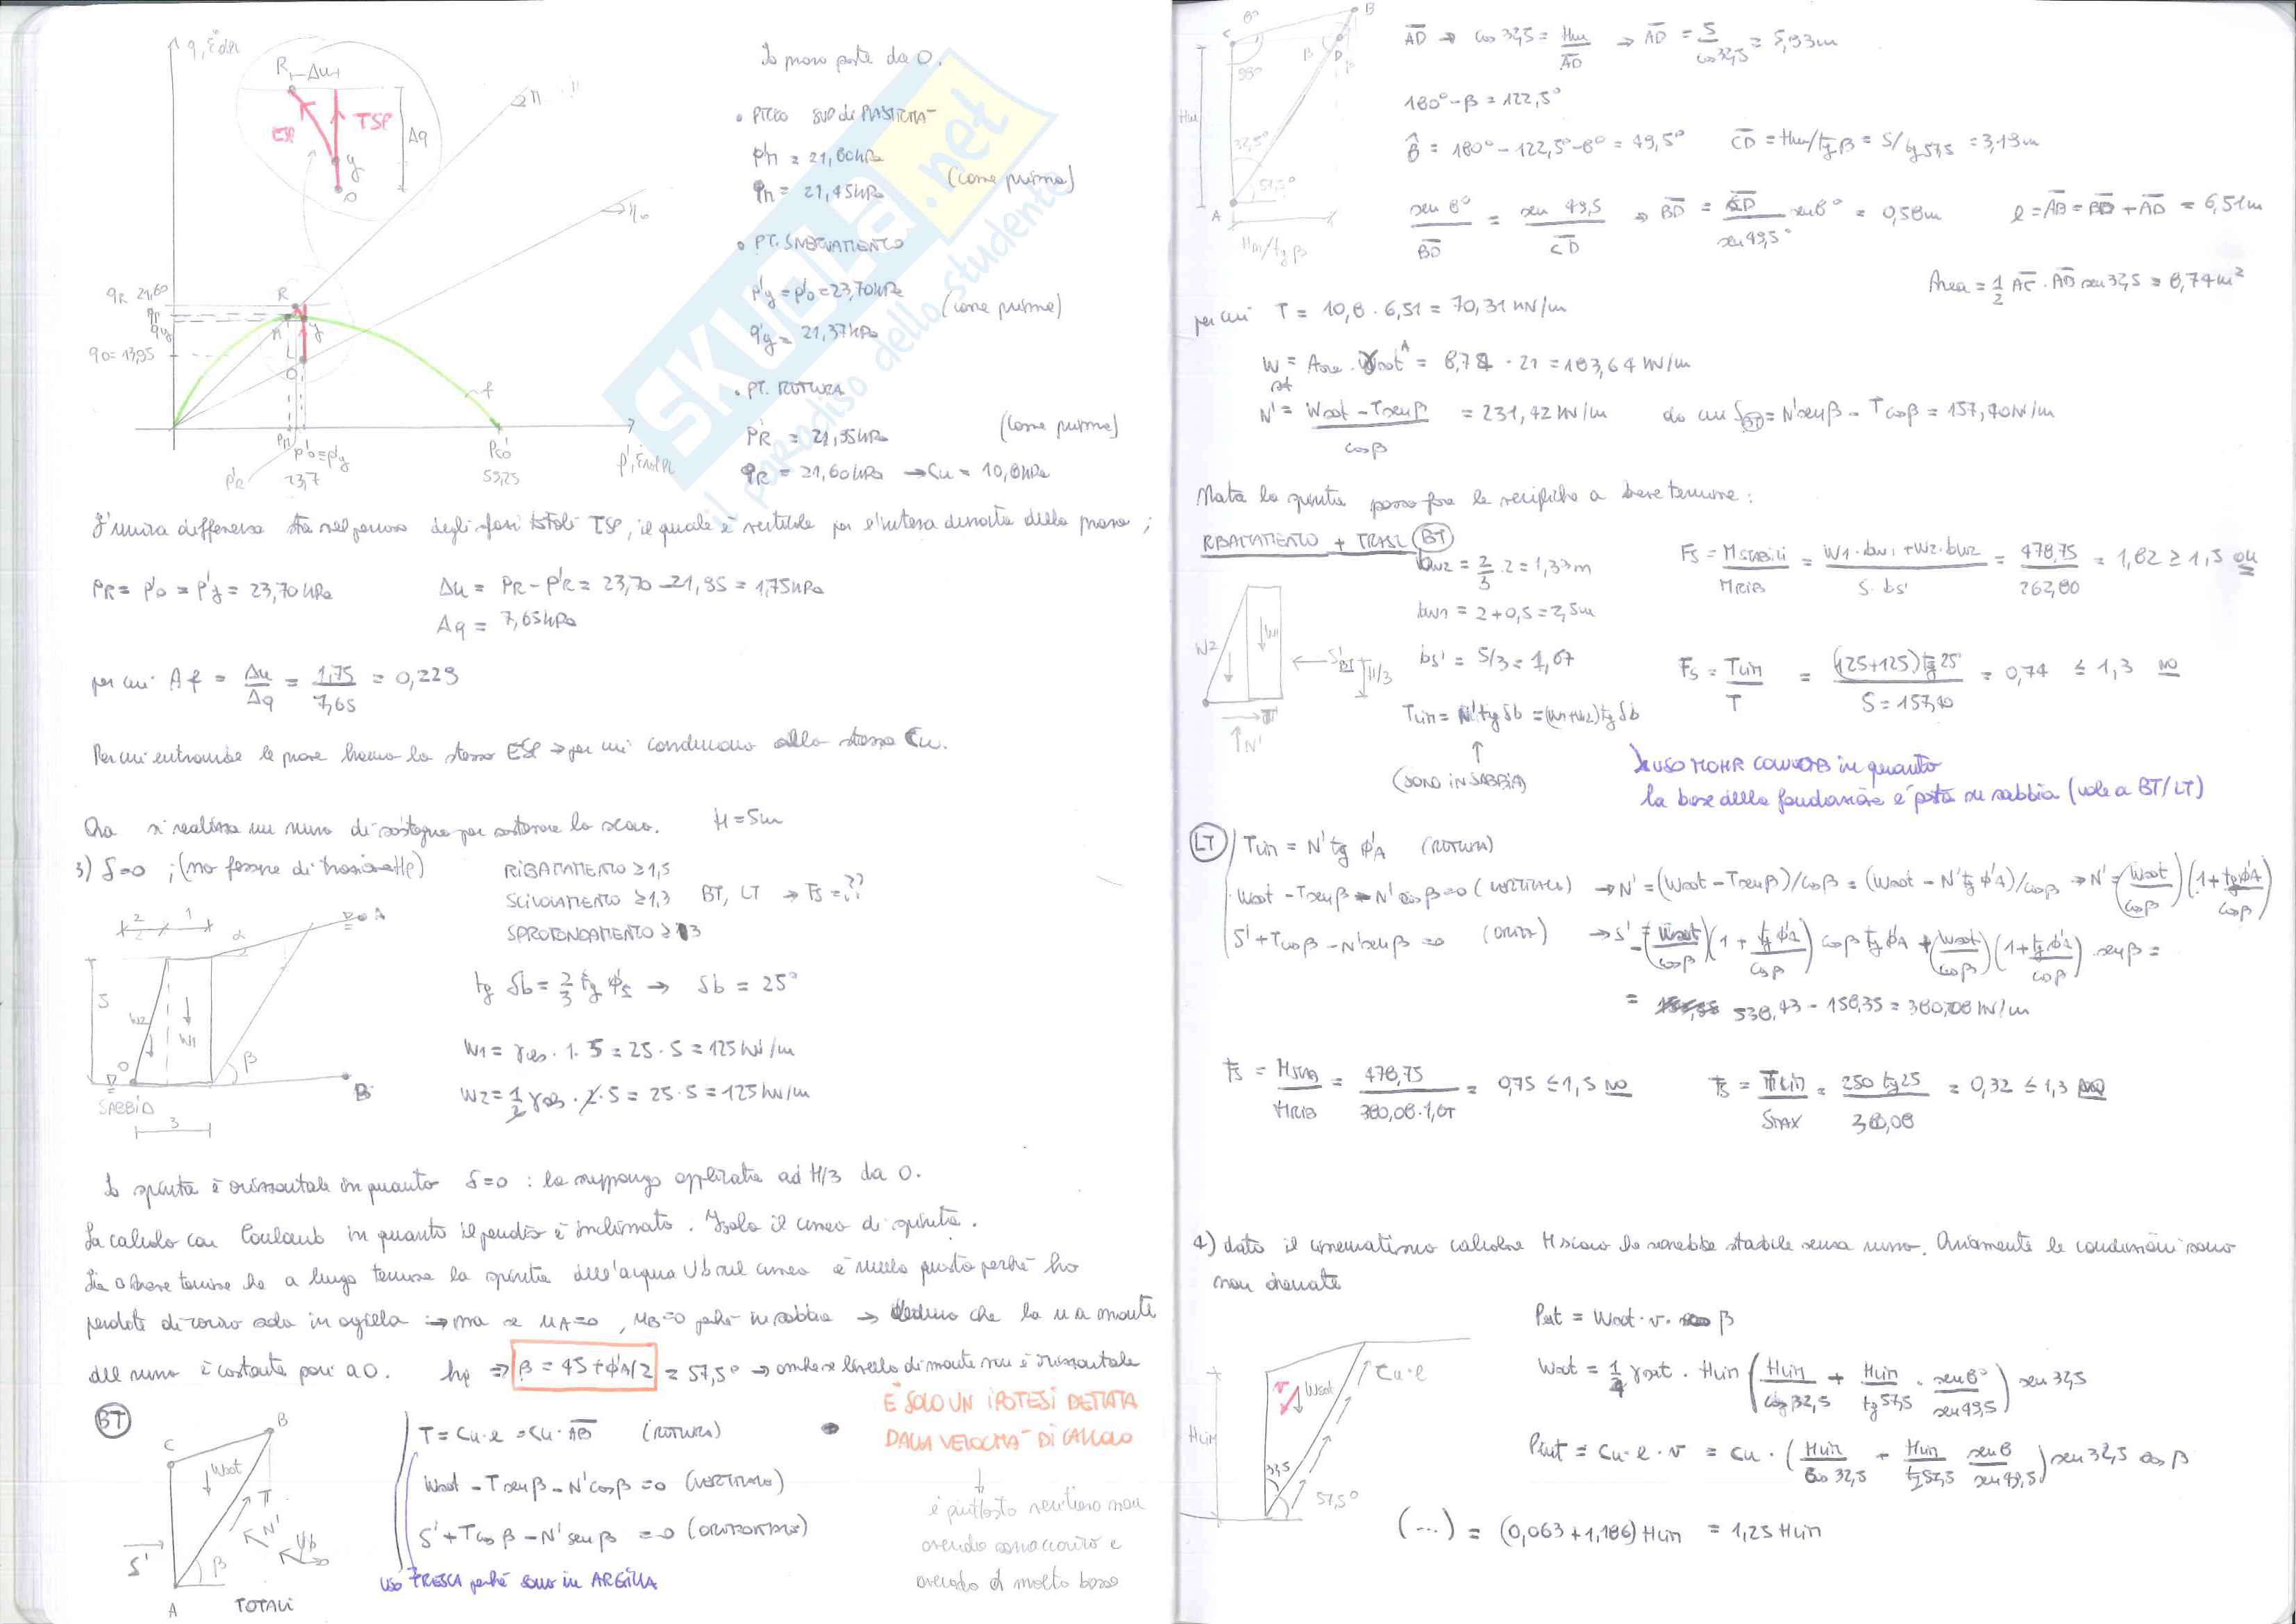 q, ε dev
R
Δu
ESP
TSP
Δq
y
O
qR 21,60
qy
q0=13,95
R
M
y
O
f
η
η0
pM
p'0=p'y
p'R
23,7
p'c0
59,25
p', ε vol
La prova parte da O.
• PICCO SUP di PLASTICITÀ
p'M = 21,80 kPa
qM = 21,45 kPa
(come prima)
• PT. SNERVAMENTO
p'y = p'0 = 23,70 kPa
q'y = 21,37 kPa
(come prima)
• PT. ROTTURA
p'R = 21,95 kPa
(come prima)
qR = 21,60 kPa → Cu = 10,8 kPa
SKUOLA.net
il paradiso dello studente
L'unica differenza sta nel percorso degli sforzi totali TSP, il quale è verticale per l'intera durata della prova;
PR = p'0 = p'y = 23,70 kPa
Δu = PR - p'R = 23,70 - 21,95 = 1,75 kPa
Δq = 7,65 kPa
per cui Af = Δu/Δq = 1,75/7,65 = 0,229
Per cui entrambe le prove hanno lo stesso ESP → per cui conducono allo stesso Cu.
Ora si realizza un muro di sostegno per sostenere lo scavo. H = 5m
3) δ=0 ; (no fessure di trazione Hp)
RIBALTAMENTO ≥ 1,5
SCIVOLAMENTO ≥ 1,3 BT, LT → Fs = ??
SPROFONDAMENTO ≥ 3
2
1
α
A
5
W2
W1
O
β
B
SABBIA
3
tg δb = 2/3 tg φ's → δb = 25°
W1 = γcls · 1 · 5 = 25 · 5 = 125 kN/m
W2 = 1/2 γcls · 2 · 5 = 25 · 5 = 125 kN/m
La spinta è orizzontale in quanto δ=0 : la suppongo applicata ad H/3 da O.
La calcolo con Coulomb in quanto il pendio è inclinato. Isolo il cuneo di spinta.
Sia a breve termine che a lungo termine la spinta dell'acqua Ub sul cuneo è nulla questo perché ho
perdite di carico solo in argilla → ma se uA=0, uB=0 perché in sabbia → deduco che la u a monte
del muro è costante pari a 0. hp ⇒ β = 45 + φ'A/2 = 57,5° → anche se livello di monte non è orizzontale
È SOLO UN IPOTESI DETTATA
DALLA VELOCITÀ DI CALCOLO
è piuttosto veritiero non
avendo
avendo α molto basso
BT
C
B
Wsat
T
N'
Ub
S'
β
A
TOTALI
T = Cu·l = Cu·AB (ROTTURA)
Wsat - T sen β - N' cos β = 0 (VERTICALE)
S' + T cos β - N' sen β = 0 (ORIZZONTALE)
USO TRESCA perché sono in ARGILLA
8°
B
C
β
D
98°
Hm
32,5°
57,5°
A
Hm/tg β
AD → cos 32,5 = Hm/AD → AD = 5/cos 32,5 = 5,93 m
180° - β = 122,5°
B̂ = 180° - 122,5° - 8° = 49,5°
CD = Hm/tg β = 5/tg 57,5 = 3,19 m
sen 8°/BD = sen 49,5/CD → BD = CD/sen 49,5° sen 8° = 0,58 m
l = AB = BD + AD = 6,51 m
Area = 1/2 AC · AD sen 32,5 = 8,74 m²
per cui T = 10,8 · 6,51 = 70,31 kN/m
Wsat = Area · γsat A = 8,74 · 21 = 183,64 kN/m
N' = Wsat - T sen β / cos β = 231,42 kN/m
da cui SBT = N' sen β - T cos β = 157,40 kN/m
Nota la spinta posso fare le verifiche a breve termine:
RIBALTAMENTO + TRASL BT
W2
W1
S'BT
H/3
T
N'
bW2 = 2/3 · 2 = 1,33 m
bW1 = 2 + 0,5 = 2,5 m
bs' = 5/3 = 1,67
Tlim = N' tg δb = (W1+W2) tg δb
(SONO IN SABBIA)
Fs = MSTABILI/MRIB = W1·bW1 + W2·bW2 / S·bs' = 478,75/262,80 = 1,82 ≥ 1,5 OK
Fs = Tlim/T = (125+125) tg 25/S=157,40 = 0,74 ≤ 1,3 NO
USO MOHR COULOMB in quanto
la base della fondazione è posta su sabbia (vale a BT/LT)
LT
Tlim = N' tg φ'A (ROTTURA)
Wsat - T sen β - N' cos β = 0 (VERTICALE) → N' = (Wsat - T sen β)/cos β = (Wsat - N' tg φ'A)/cos β → N' = (Wsat/cos β)(1 + tg φ'A/cos β)
S' + T cos β - N' sen β = 0 (ORIZZ) → S' = -(Wsat/cos β)(1 + tg φ'A/cos β) cos β tg φ'A + (Wsat/cos β)(1 + tg φ'A/cos β) sen β =
= 538,43 - 158,35 = 380,08 kN/m
Fs = MSTAB/MRIB = 478,75/380,08·1,67 = 0,75 ≤ 1,5 NO
Fs = Tlim/SMAX = 250 tg 25/380,08 = 0,32 ≤ 1,3 NO
4) dato il cinematismo calcolare H scavo che sarebbe stabile senza muro. Ovviamente le condizioni sono
non drenate
Pest = Wsat · v · β
Wsat = γsat · Hlim (Hlim/cos 32,5 + Hlim/tg 57,5 · sen 8°/sen 49,5) sen 32,5
Pint = Cu · l · v = Cu · (Hlim/cos 32,5 + Hlim/tg 57,5 sen 8/sen 49,5) sen 32,5 cos β
v
Wsat
Cu·l
Hlim
32,5
57,5°
(...) = (0,063 + 1,186) Hlim = 1,25 Hlim